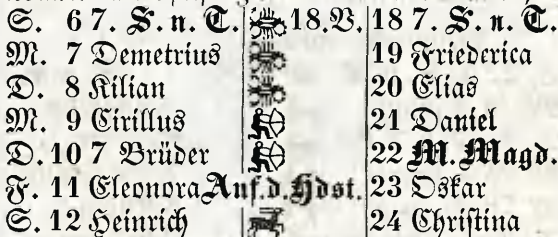 S. 6 7. S. n. T. 18. V. 18 7. S. n. T.
M. 7 Demetrius 19 Friederica
D. 8 Kilian 20 Elias
M. 9 Cirillus 21 Daniel
D. 10 7 Brüder 22 M. Magd.
F. 11 Eleonora Anf. d. Hdst. 23 Oskar
S. 12 Heinrich 24 Christina